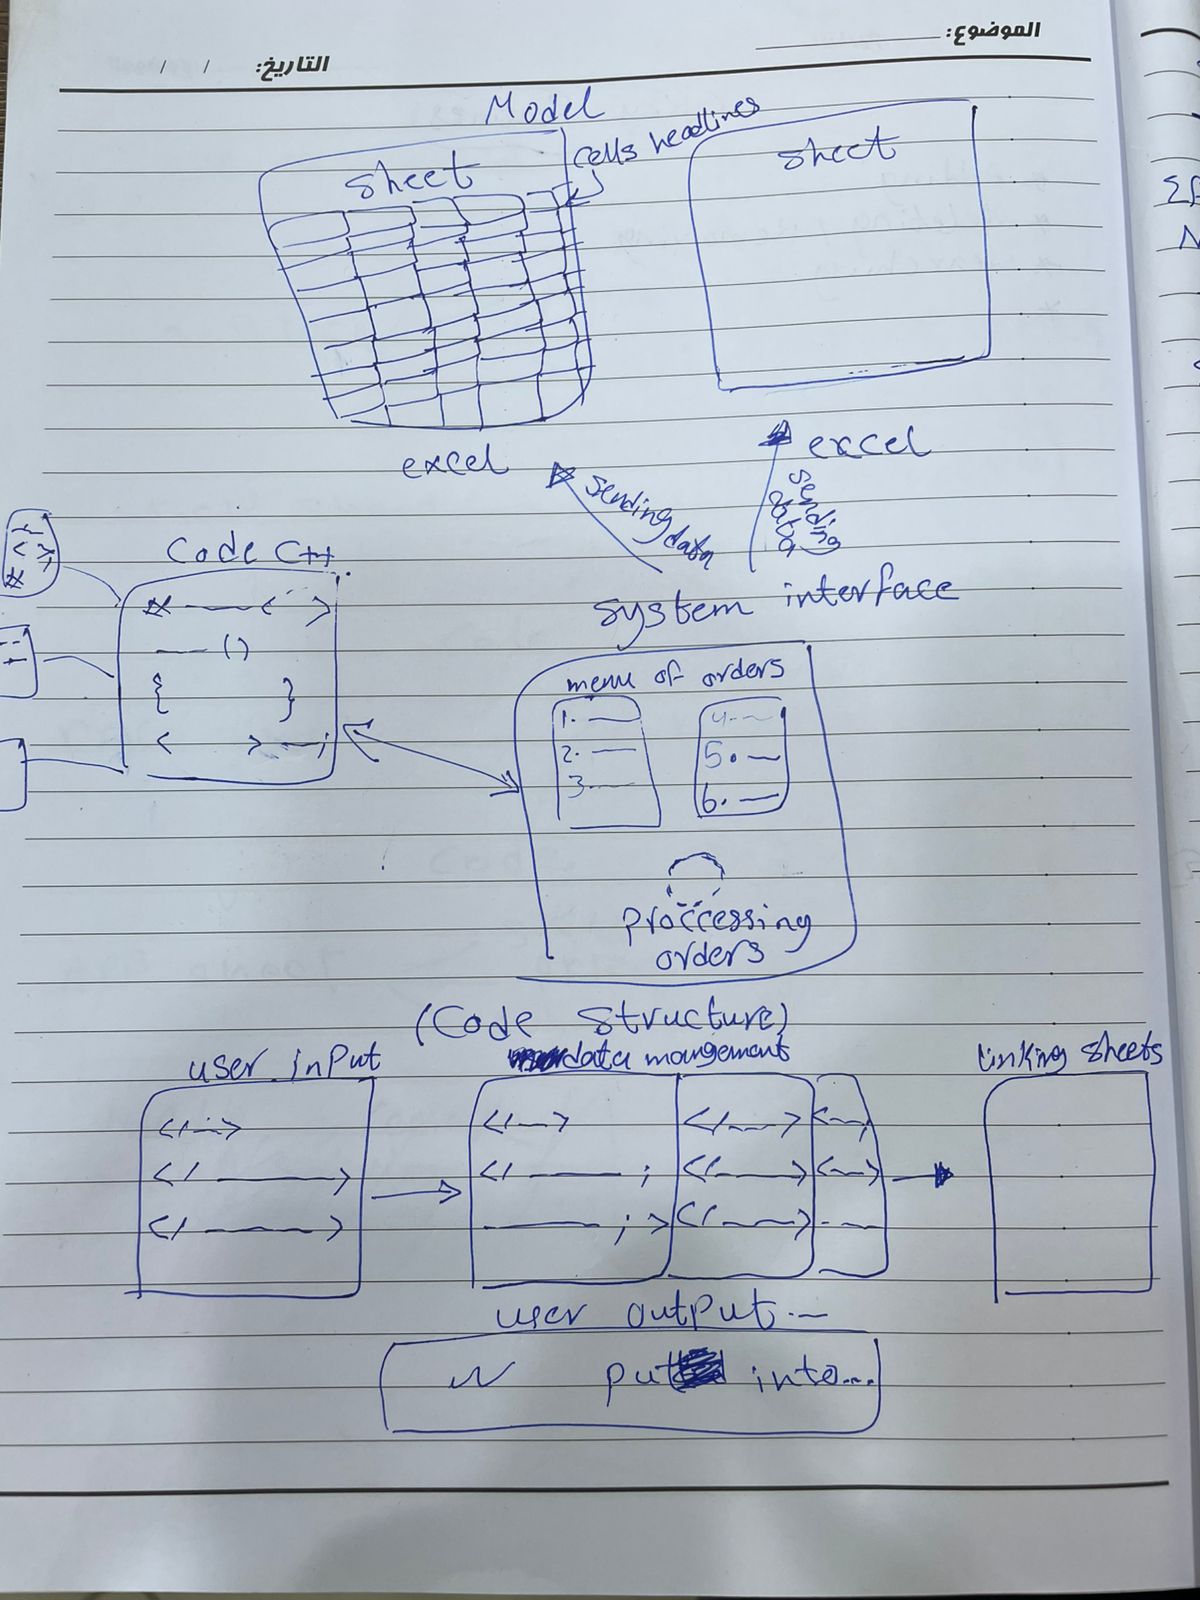 الموضوع:
التاريخ: / /
Model
cells headlines
sheet
sheet
excel
excel
sending data
sending data
Code C++
system interface
menu of orders
1.
2.
3.
4.
5.
6.
proccessing
orders
(Code structure)
user input
data mangement
linking sheets
user output...
put into...